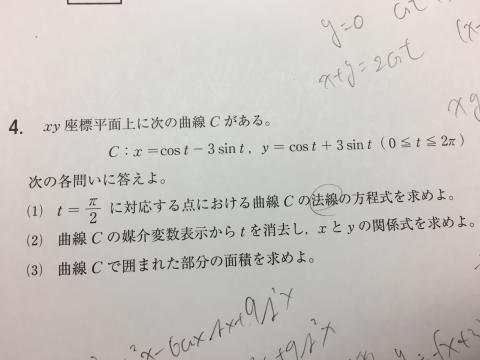 y=0
x+y=2
4. xy 座標平面上に次の曲線 C がある。
C : x=cos t−3 sin t, y=cos t+3 sin t (0≦t≦2π)
次の各問いに答えよ。
(1) t=π/2 に対応する点における曲線 C の法線の方程式を求めよ。
(2) 曲線 C の媒介変数表示から t を消去し, x と y の関係式を求めよ。
(3) 曲線 C で囲まれた部分の面積を求めよ。